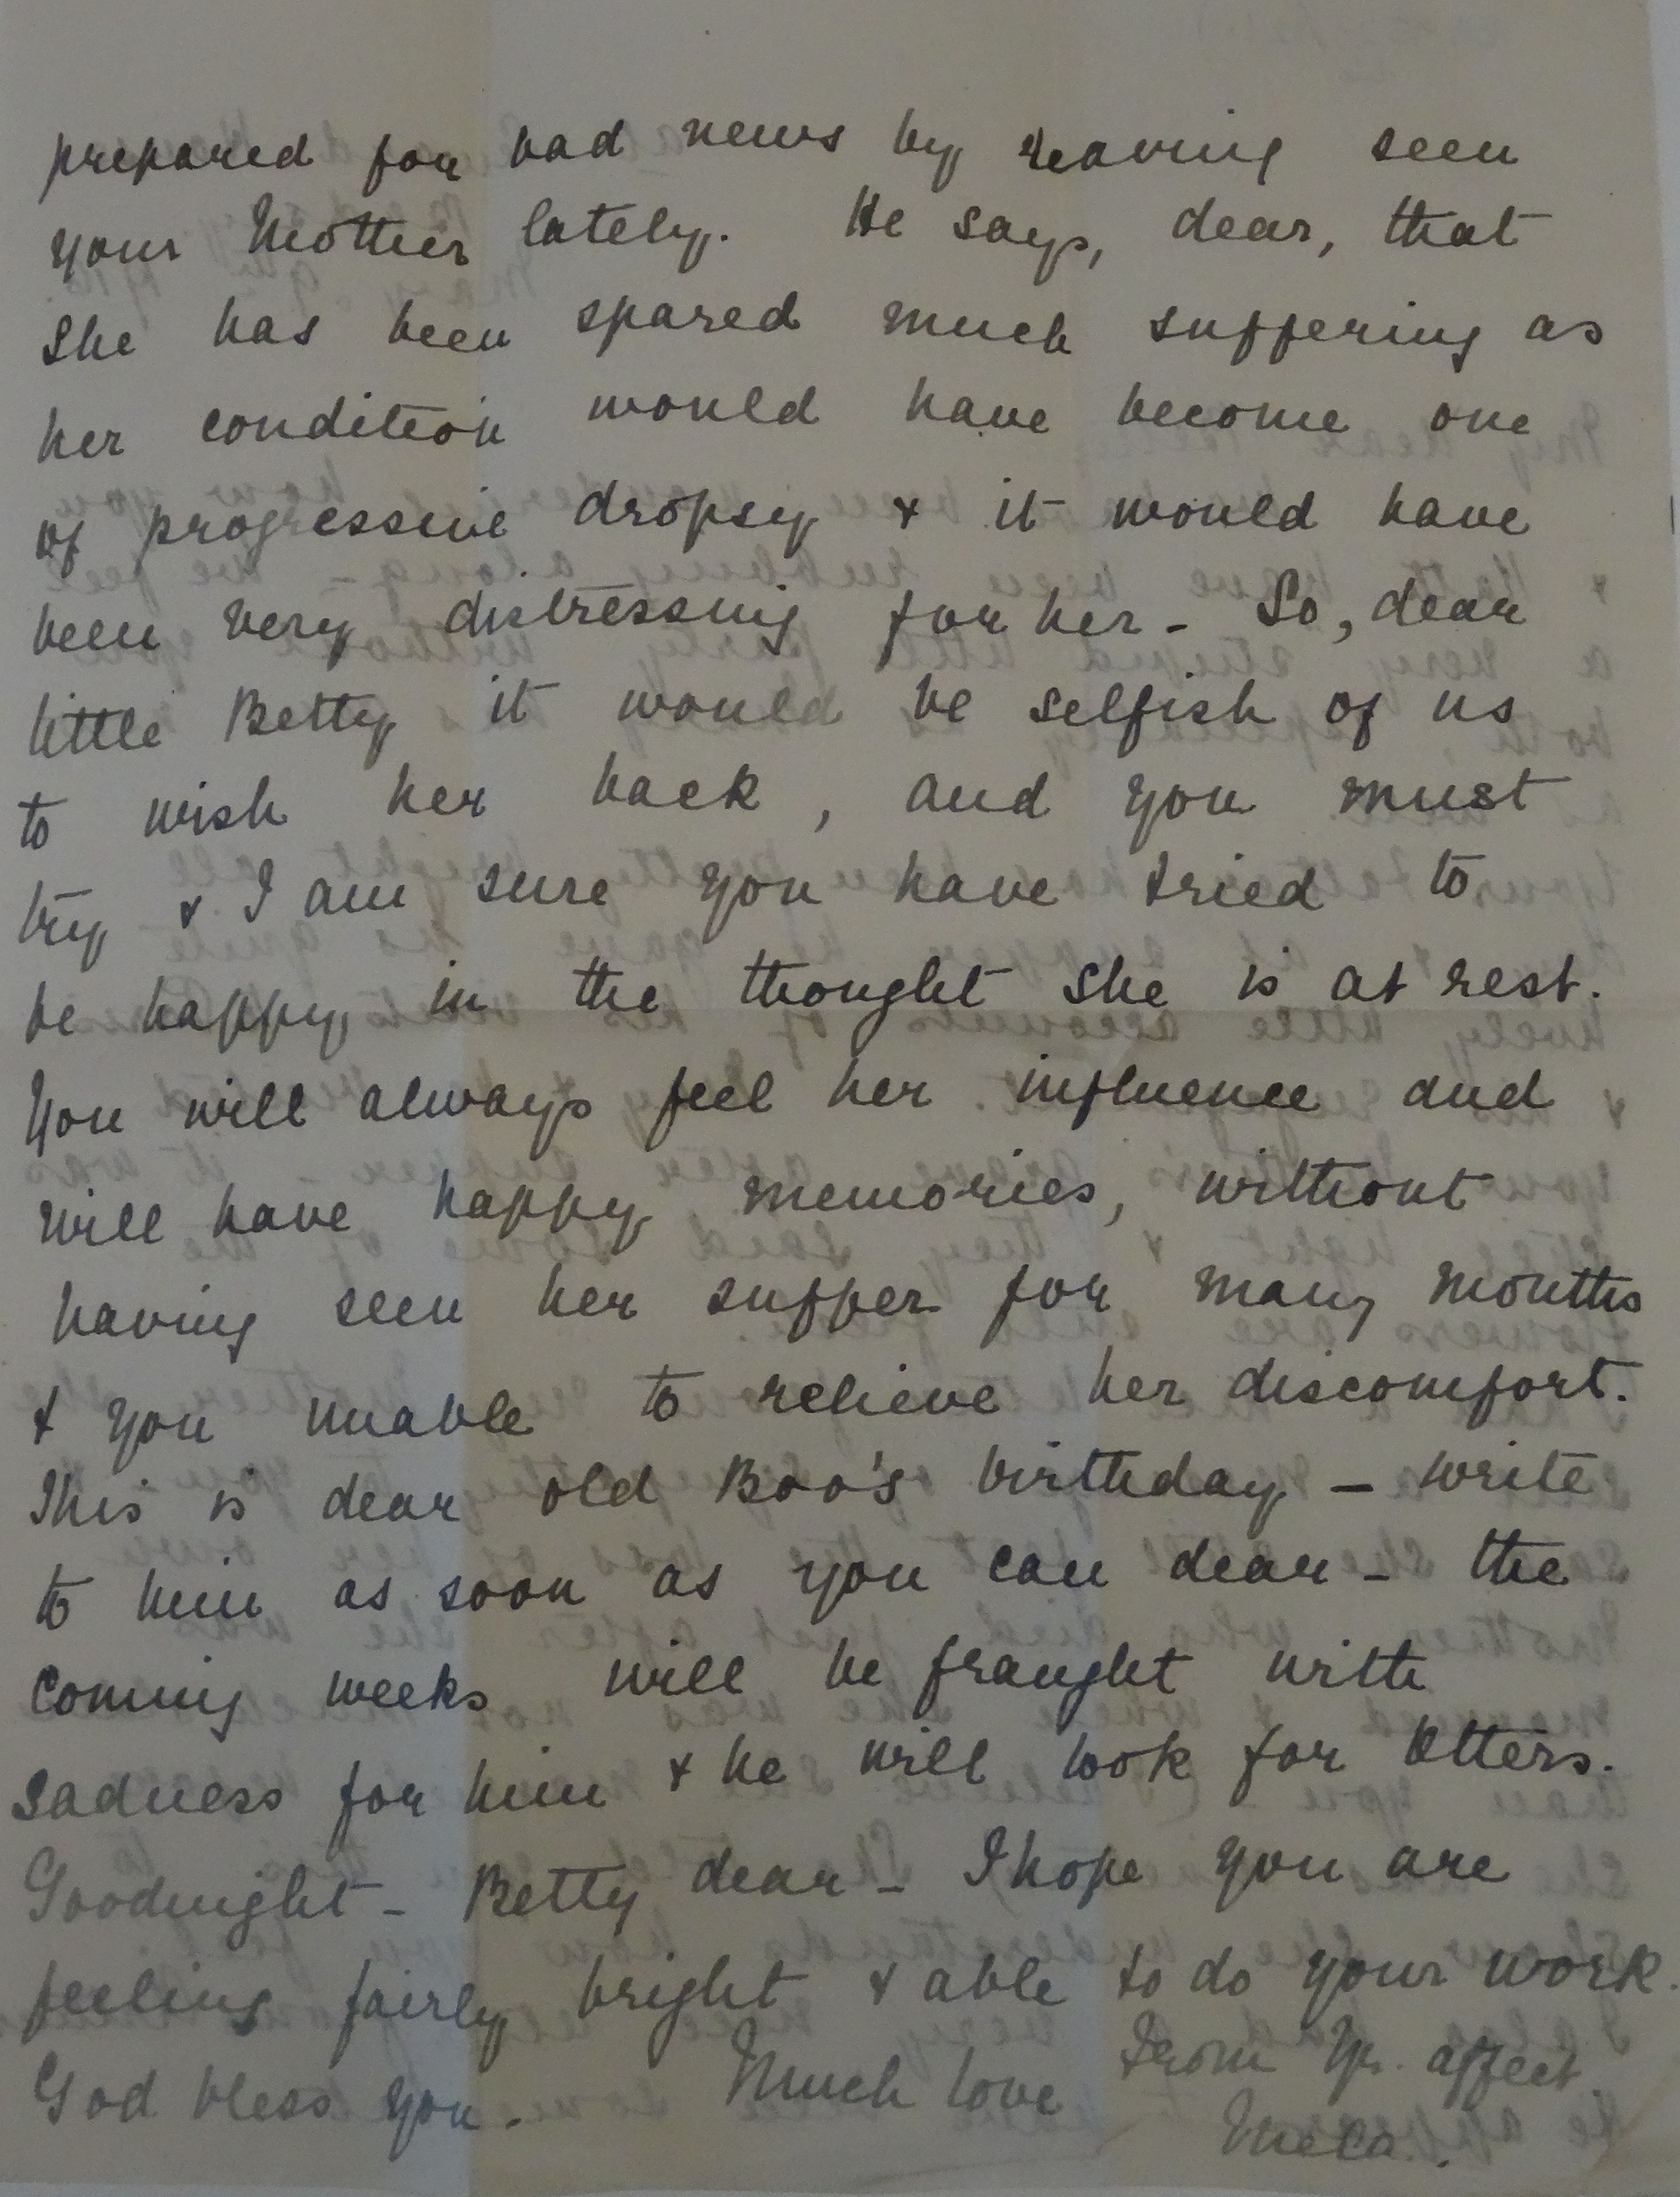 prepared for bad news by having seen
your Mother lately. He says, dear, that
she has been spared much suffering as
her condition would have become one
of progressive dropsy & it would have
been very distressing for her - So, dear
little Betty it would be selfish of us
to wish her back, and you must
try & I am sure you have tried to
be happy in the thought she is at rest.
You will always feel her influence and
will have happy memories, without
having seen her suffer for many months
& you unable to relieve her discomfort.
This is dear old Boo's birthday - write
to him as soon as you can dear - the
coming weeks will be fraught with
sadness for him & he will look for letters.
Goodnight - Betty dear - I hope you are
feeling fairly bright & able to do your work.
God bless you. Much love from Yr. affect.